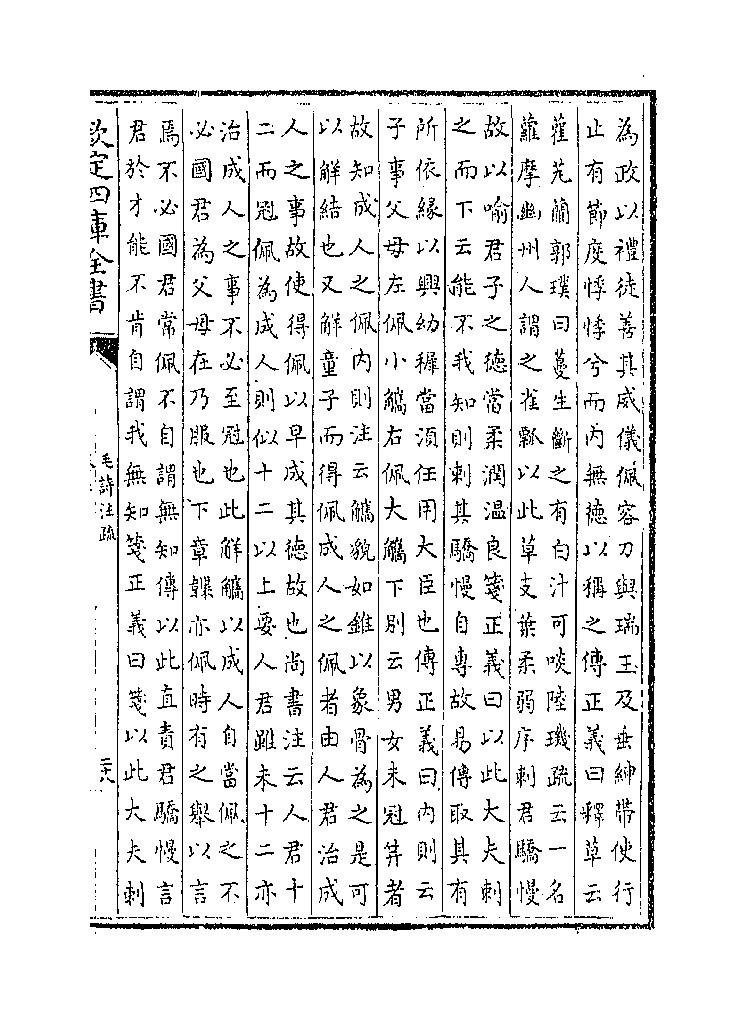 為政以禮徒善其威儀佩容刀與瑞玉及垂紳帶使行
止有節度悸悸兮而内無德以稱之傳正義曰釋草云
雚芄蘭郭璞曰蔓生斷之有白汁可啖陸璣疏云一名
蘿摩幽州人謂之雀瓢以此草支葉柔弱序刺君驕慢
故以喻君子之德當柔潤温良箋正義曰以此大夫刺
之而下云能不我知則刺其驕慢自專故易傳取其有
所依緣以興幼穉當須任用大臣也傳正義曰内則云
子事父母左佩小觿右佩大觿下別云男女未冠筓者
故知成人之佩内則注云觿貌如錐以象骨為之是可
以解結也又解童子而得佩成人之佩者由人君治成
人之事故使得佩以早成其德故也尚書注云人君十
二而冠佩為成人則似十二以上要人君雖未十二亦
治成人之事不必至冠也此解觿以成人自當佩之不
必國君為父母在乃服也下章韘亦佩時有之舉以言
焉不必國君常佩不自謂無知傳以此直責君驕慢言
君於才能不肯自謂我無知箋正義曰箋以此大夫刺
欽定四庫全書
毛詩注疏
二十八